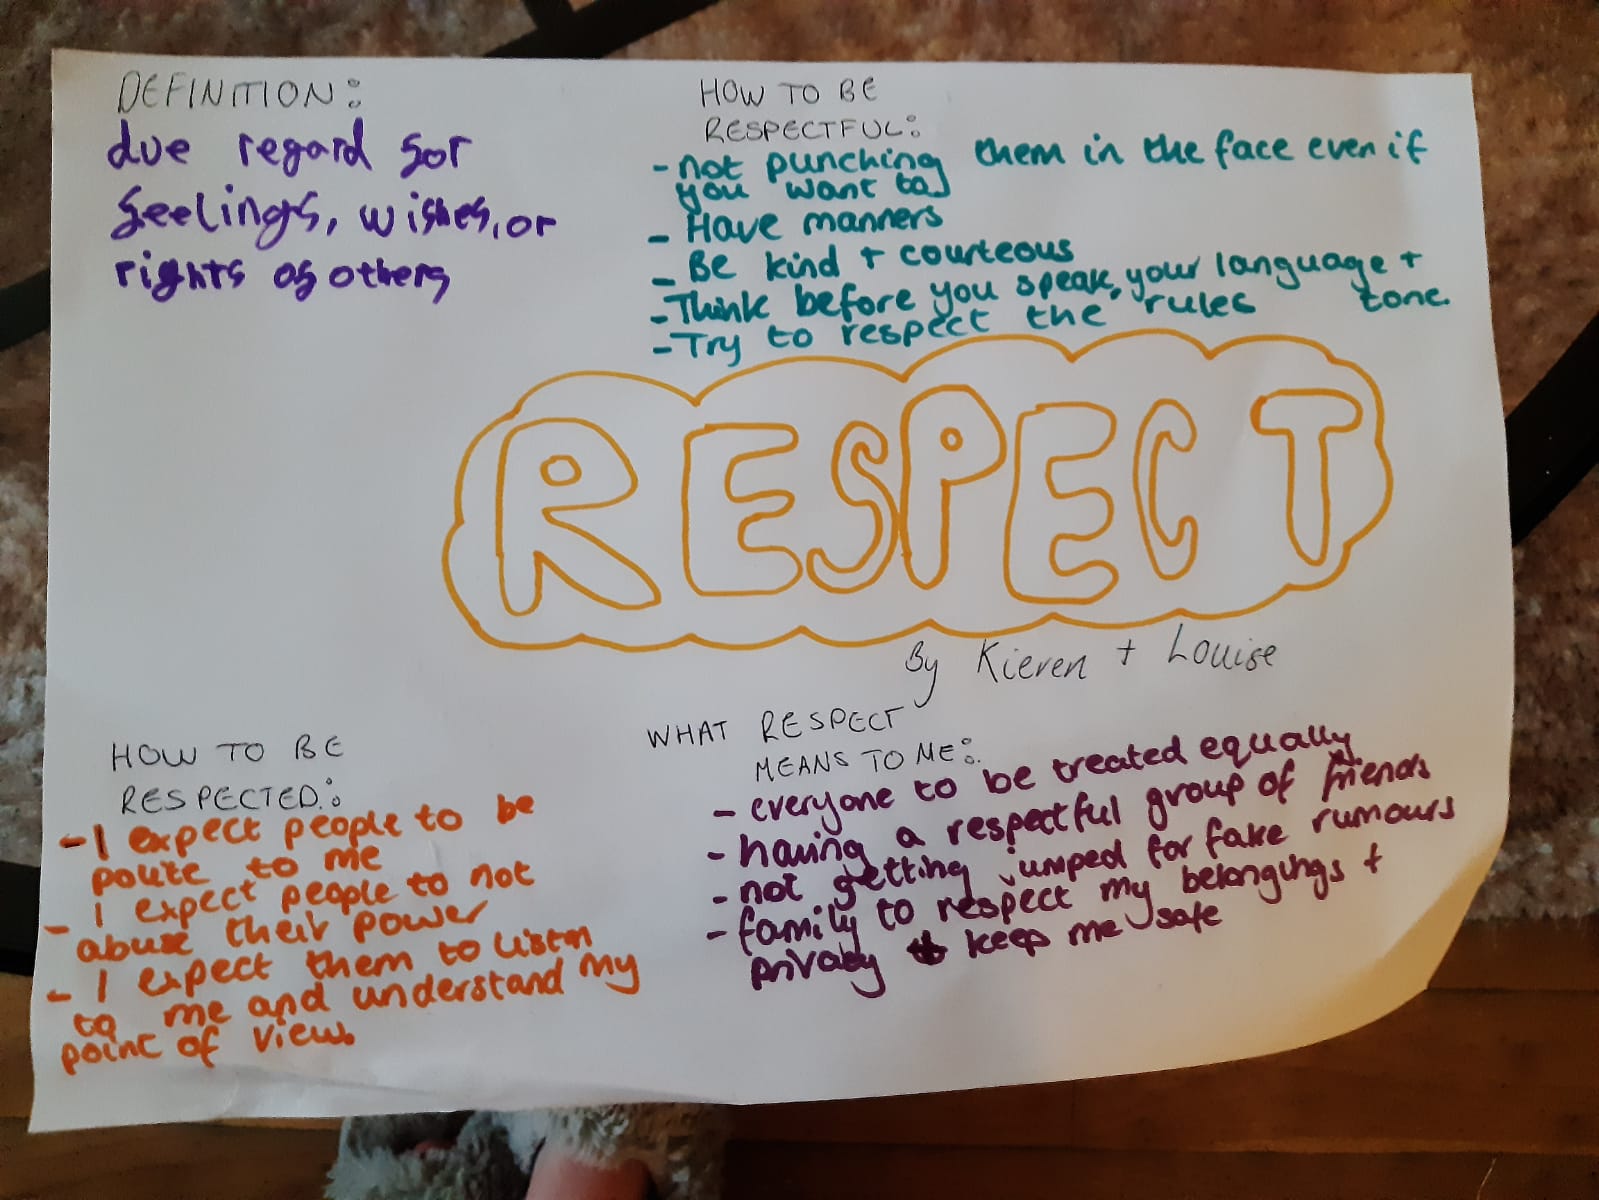 DEFINITION:
due regard for
feelings, wishes, or
rights of others
HOW TO BE
RESPECTFUL:
- not punching them in the face even if
you want to
- Have manners
- Be kind + courteous
- Think before you speak, your language +
tone.
- Try to respect the rules
RESPECT
By Kieren + Louise
HOW TO BE
RESPECTED:
- I expect people to be
polite to me
- I expect people to not
abuse their power
- I expect them to listen
to me and understand my
point of view.
WHAT RESPECT
MEANS TO ME:
- everyone to be treated equally
- having a respectful group of friends
- not getting jumped for fake rumours
- family to respect my belongings +
privacy + keep me safe